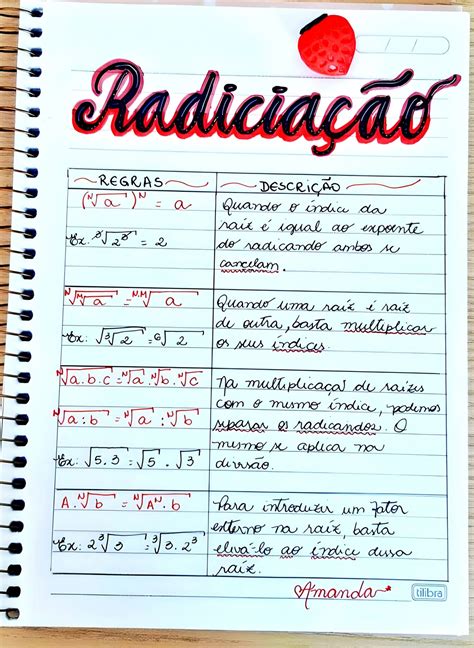 Radiciação
REGRAS
DESCRIÇÃO
(ᴺ√a)ᴺ = a
Ex: ³√2³ = 2
Quando o índice da
raiz é igual ao expoente
do radicando ambos se
cancelam.
ᴺ√ᴹ√a = ᴺ·ᴹ√a
Ex: √³√2 = ⁶√2
Quando uma raiz é raiz
de outra, basta multiplicar
os seus índices.
ᴺ√a.b.c = ᴺ√a . ᴺ√b . ᴺ√c
ᴺ√a:b = ᴺ√a : ᴺ√b
Ex: √5.3 = √5 . √3
Na multiplicaçaĩ de raízes
com o mesmo índice, podemos
separar os radicandos. O
mesmo se aplica na
divisão.
A.ᴺ√b = ᴺ√Aᴺ.b
Ex: 2³√3 = ³√3.2³
Para introduzir um fator
externo na raiz, basta
elevá-lo ao índice dessa
raiz.
Amanda
tilibra